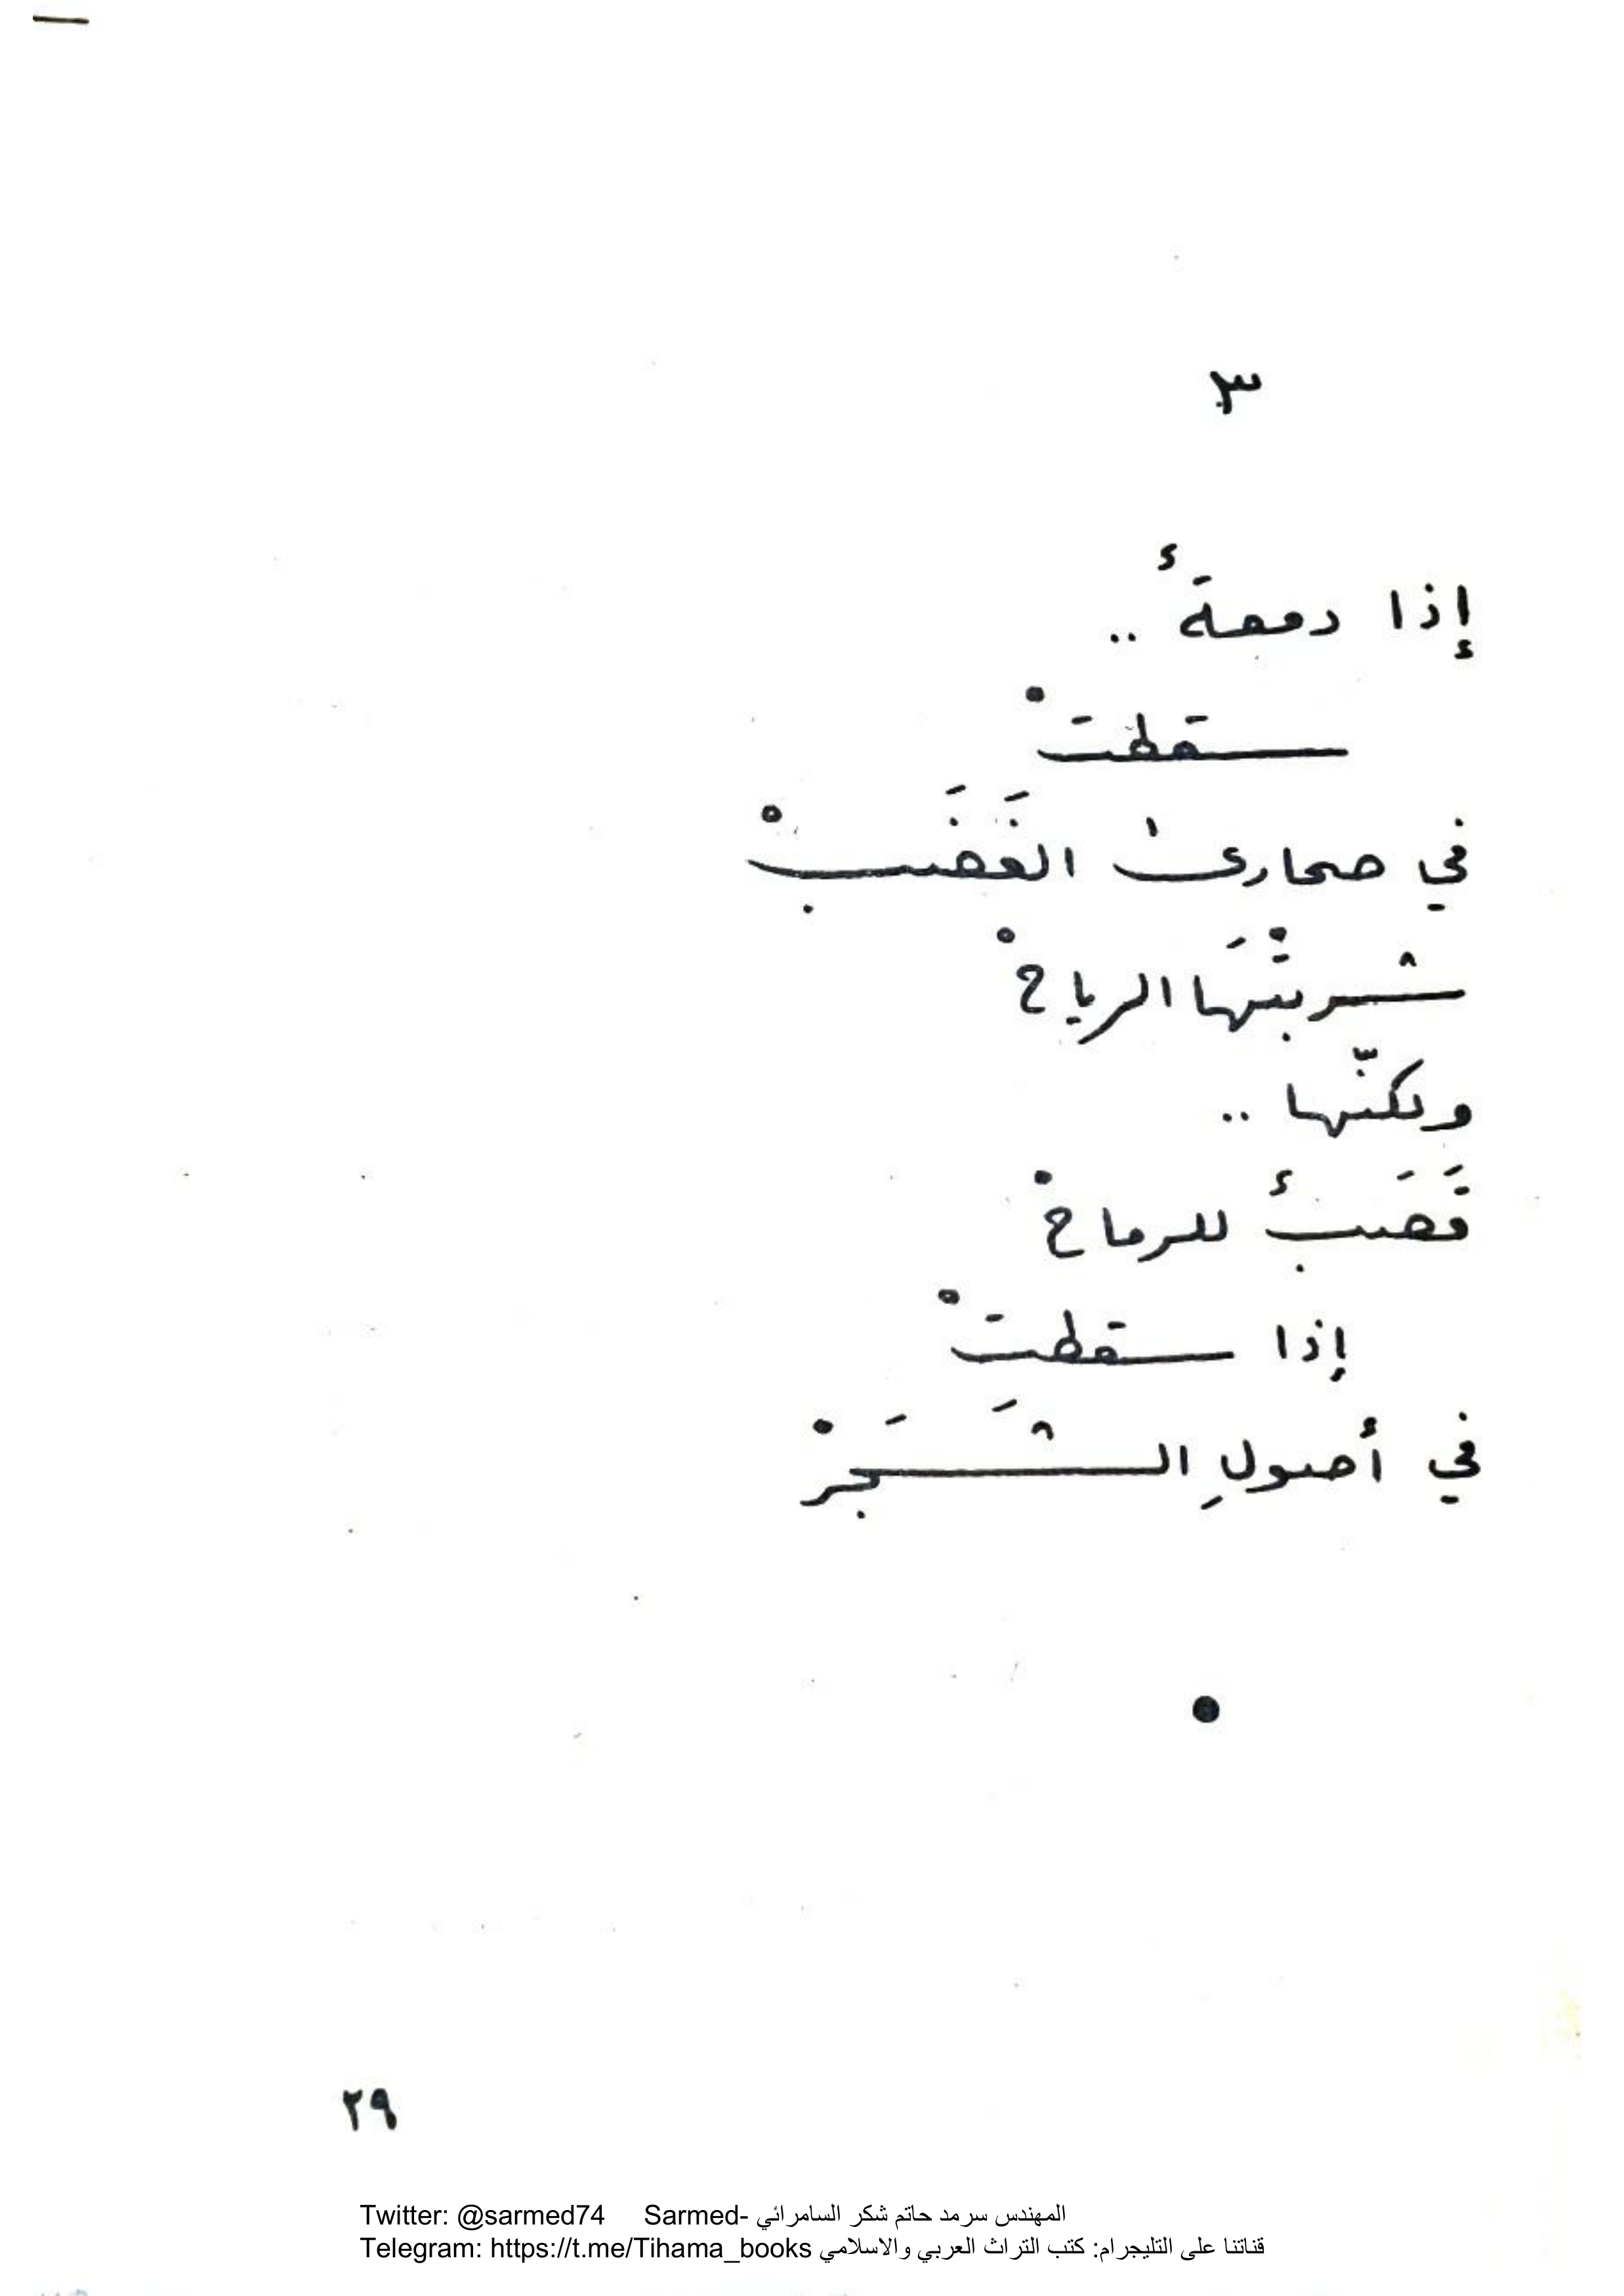 ٣
إذا دمعةٌ ..
سقطتْ
في صحارىٰ الغَضَبْ
شربتْهَا الرياحْ
ولكنّها ..
قَصَبٌ للرماحْ
إذا سقطتْ
في أصولِ الشَجَرْ
٢٩
Twitter: @sarmed74 Sarmed- المهندس سرمد حاتم شكر السامرائي
Telegram: https://t.me/Tihama_books قناتنا على التليجرام: كتب التراث العربي والاسلامي